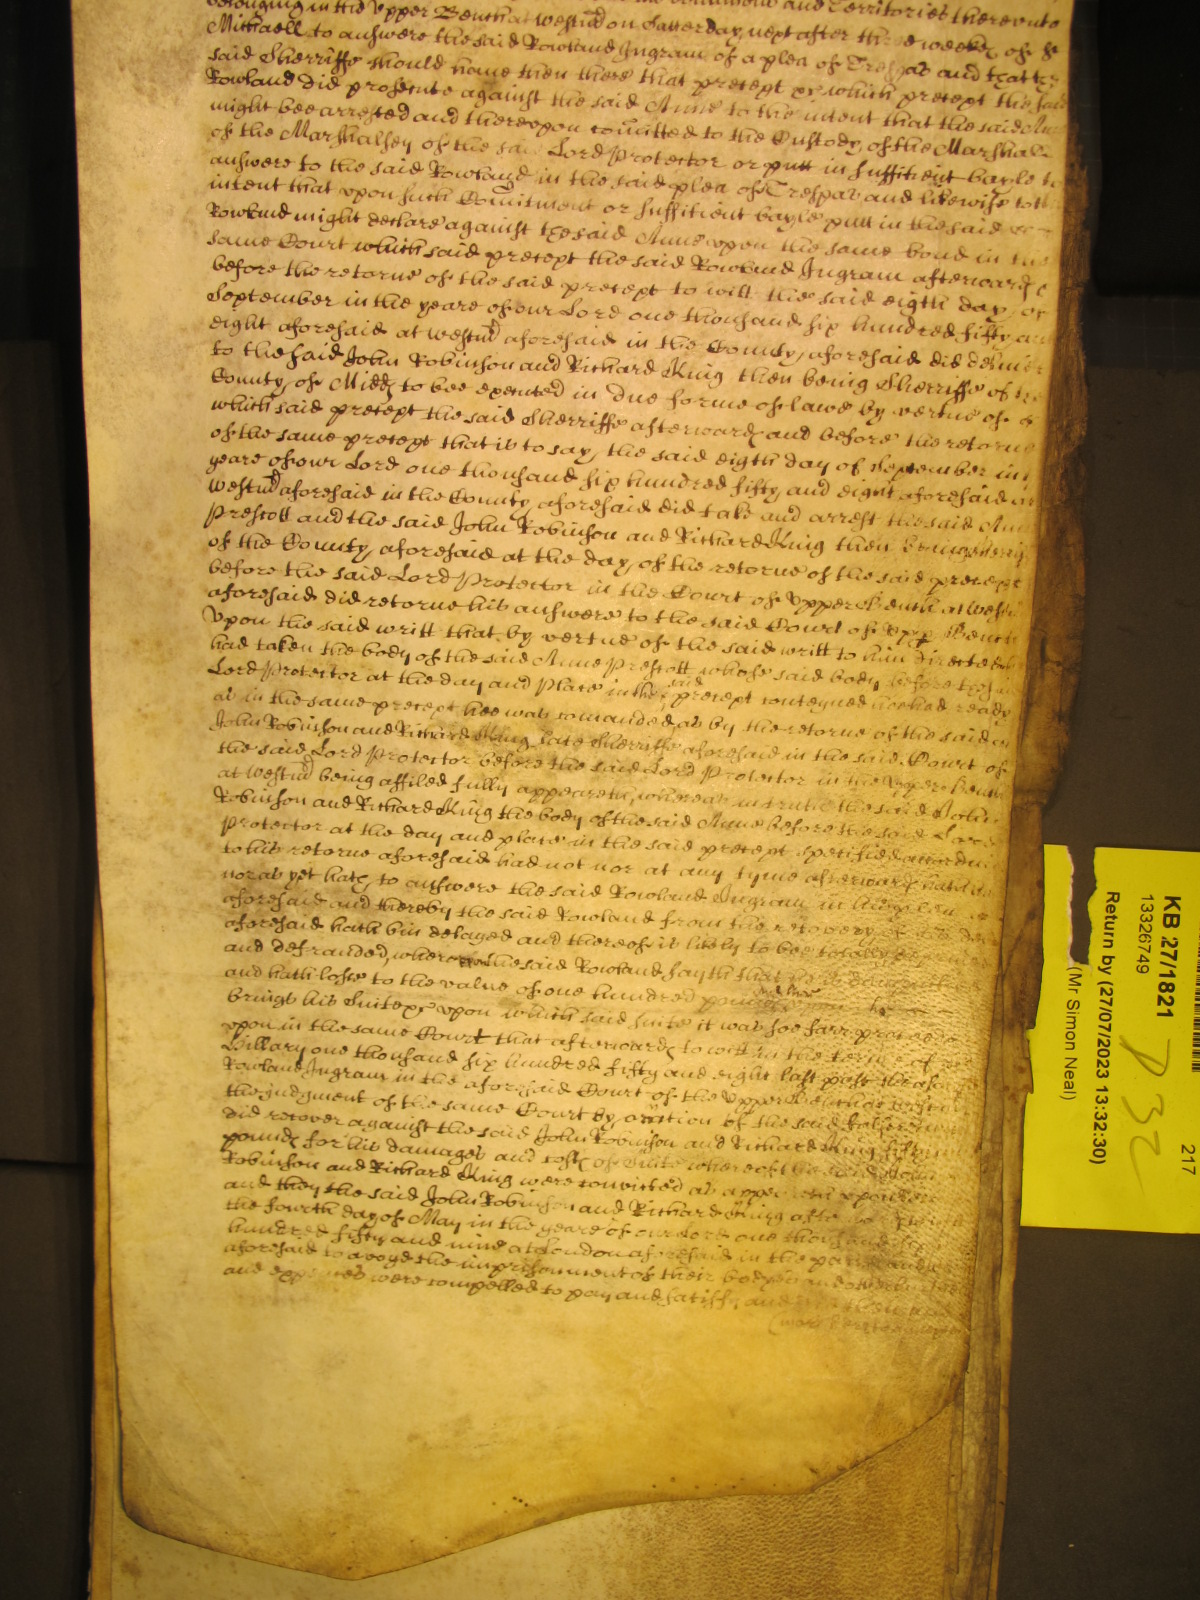 belonging in the Upper Bench at Westmr on Satterday next after three weekes of St
Michaell to answere the said Rowland Ingram of a plea of Trespas and that the
said Sherriffe should have then there that precept upon which precept the said
Rowland did prosecute against the said Anne to the intent that the said Anne
might bee arrested and therevpon comitted to the Custody of the Marshall
of the Marshalsey of the said Lord Protector or putt in sufficient bayle to
answere to the said Rowland in the said plea of Trespas and likewise to the
intent that vpon such Comitment or sufficient bayle putt in the said
Rowland might declare against the said Anne vpon the same bond in the
same Court which said precept the said Rowland Ingram afterwards
before the retorne of the said precept to witt the said eigth day of
September in the yeare of our Lord one thousand six hundred fifty and
eight aforesaid at Westmr aforesaid in the County aforesaid did deliver
to the said John Robinson and Richard King then being Sherriffe of the
County of Midd to bee executed in due forme of lawe by vertue of
which said precept the said Sherriffe afterwards and before the retorne
of the same precept that is to say the said eigth day of September in
yeare of our Lord one thousand six hundred fifty and eight aforesaid at
Westmr aforesaid in the County aforesaid did take and arrest the said Anne
Prescott and the said John Robinson and Richard King then being
of the County aforesaid at the day of the retorne of the said precept
before the said Lord Protector in the Court of Vpper Bench at Westmr
aforesaid did retorne his answere to the said Court of Vpp Bench
Vpon the said writt that by vertue of the said writt to him directed
had taken the body of the said Anne Prescott whose said body before the said
Lord Protector at the day and place in the said precept conteyned hee had ready
as in the same precept hee was comanded as by the retorne of the said
John Robinson and Richard King late Sherriffe aforesaid in the said Court of
the said Lord Protector before the said Lord Protector in the Vpper Bench
at Westmr being affiled fully appeareth whereas in truth the said John
Robinson and Richard King the body of the said Anne before the said Lord
Protector at the day and place in the said precept specified according
to his retorne aforesaid had not nor at any tyme afterwards hath
nor as yet hath to answere the said Rowland Ingram in his plea
aforesaid and thereby the said Rowland from the recovery of his
aforesaid hath bin delayed and thereof is likely to bee totally
and defrauded wherevpon the said Rowland sayth that
and hath losse to the value of one hundred pounds
brings his suite &c vpon which said suite it was soe farr proceeded
vpon in the same Court that afterwards to witt in the terme of
Hillary one thousand six hundred fifty and eight last past
Rowland Ingram in the aforesaid Court of the Vpper Bench
the judgment of the same Court by of the said
did recover against the said John Robinson and Richard King fifty
pounds for his damages and costs of suite whereof the said John
Robinson and Richard King were convicted as appeareth
and they the said John Robinson and Richard King afterwards
the fourth day of May in the yeare of our Lord one thousand six
hundred fifty and nine at London aforesaid in the parish
aforesaid to avoyd the imprisonment of their bodyes
and expences were compelled to pay and satisfy
KB 27/1821
13326749
Return by (27/07/2023 13:32:30)
(Mr Simon Neal)
217